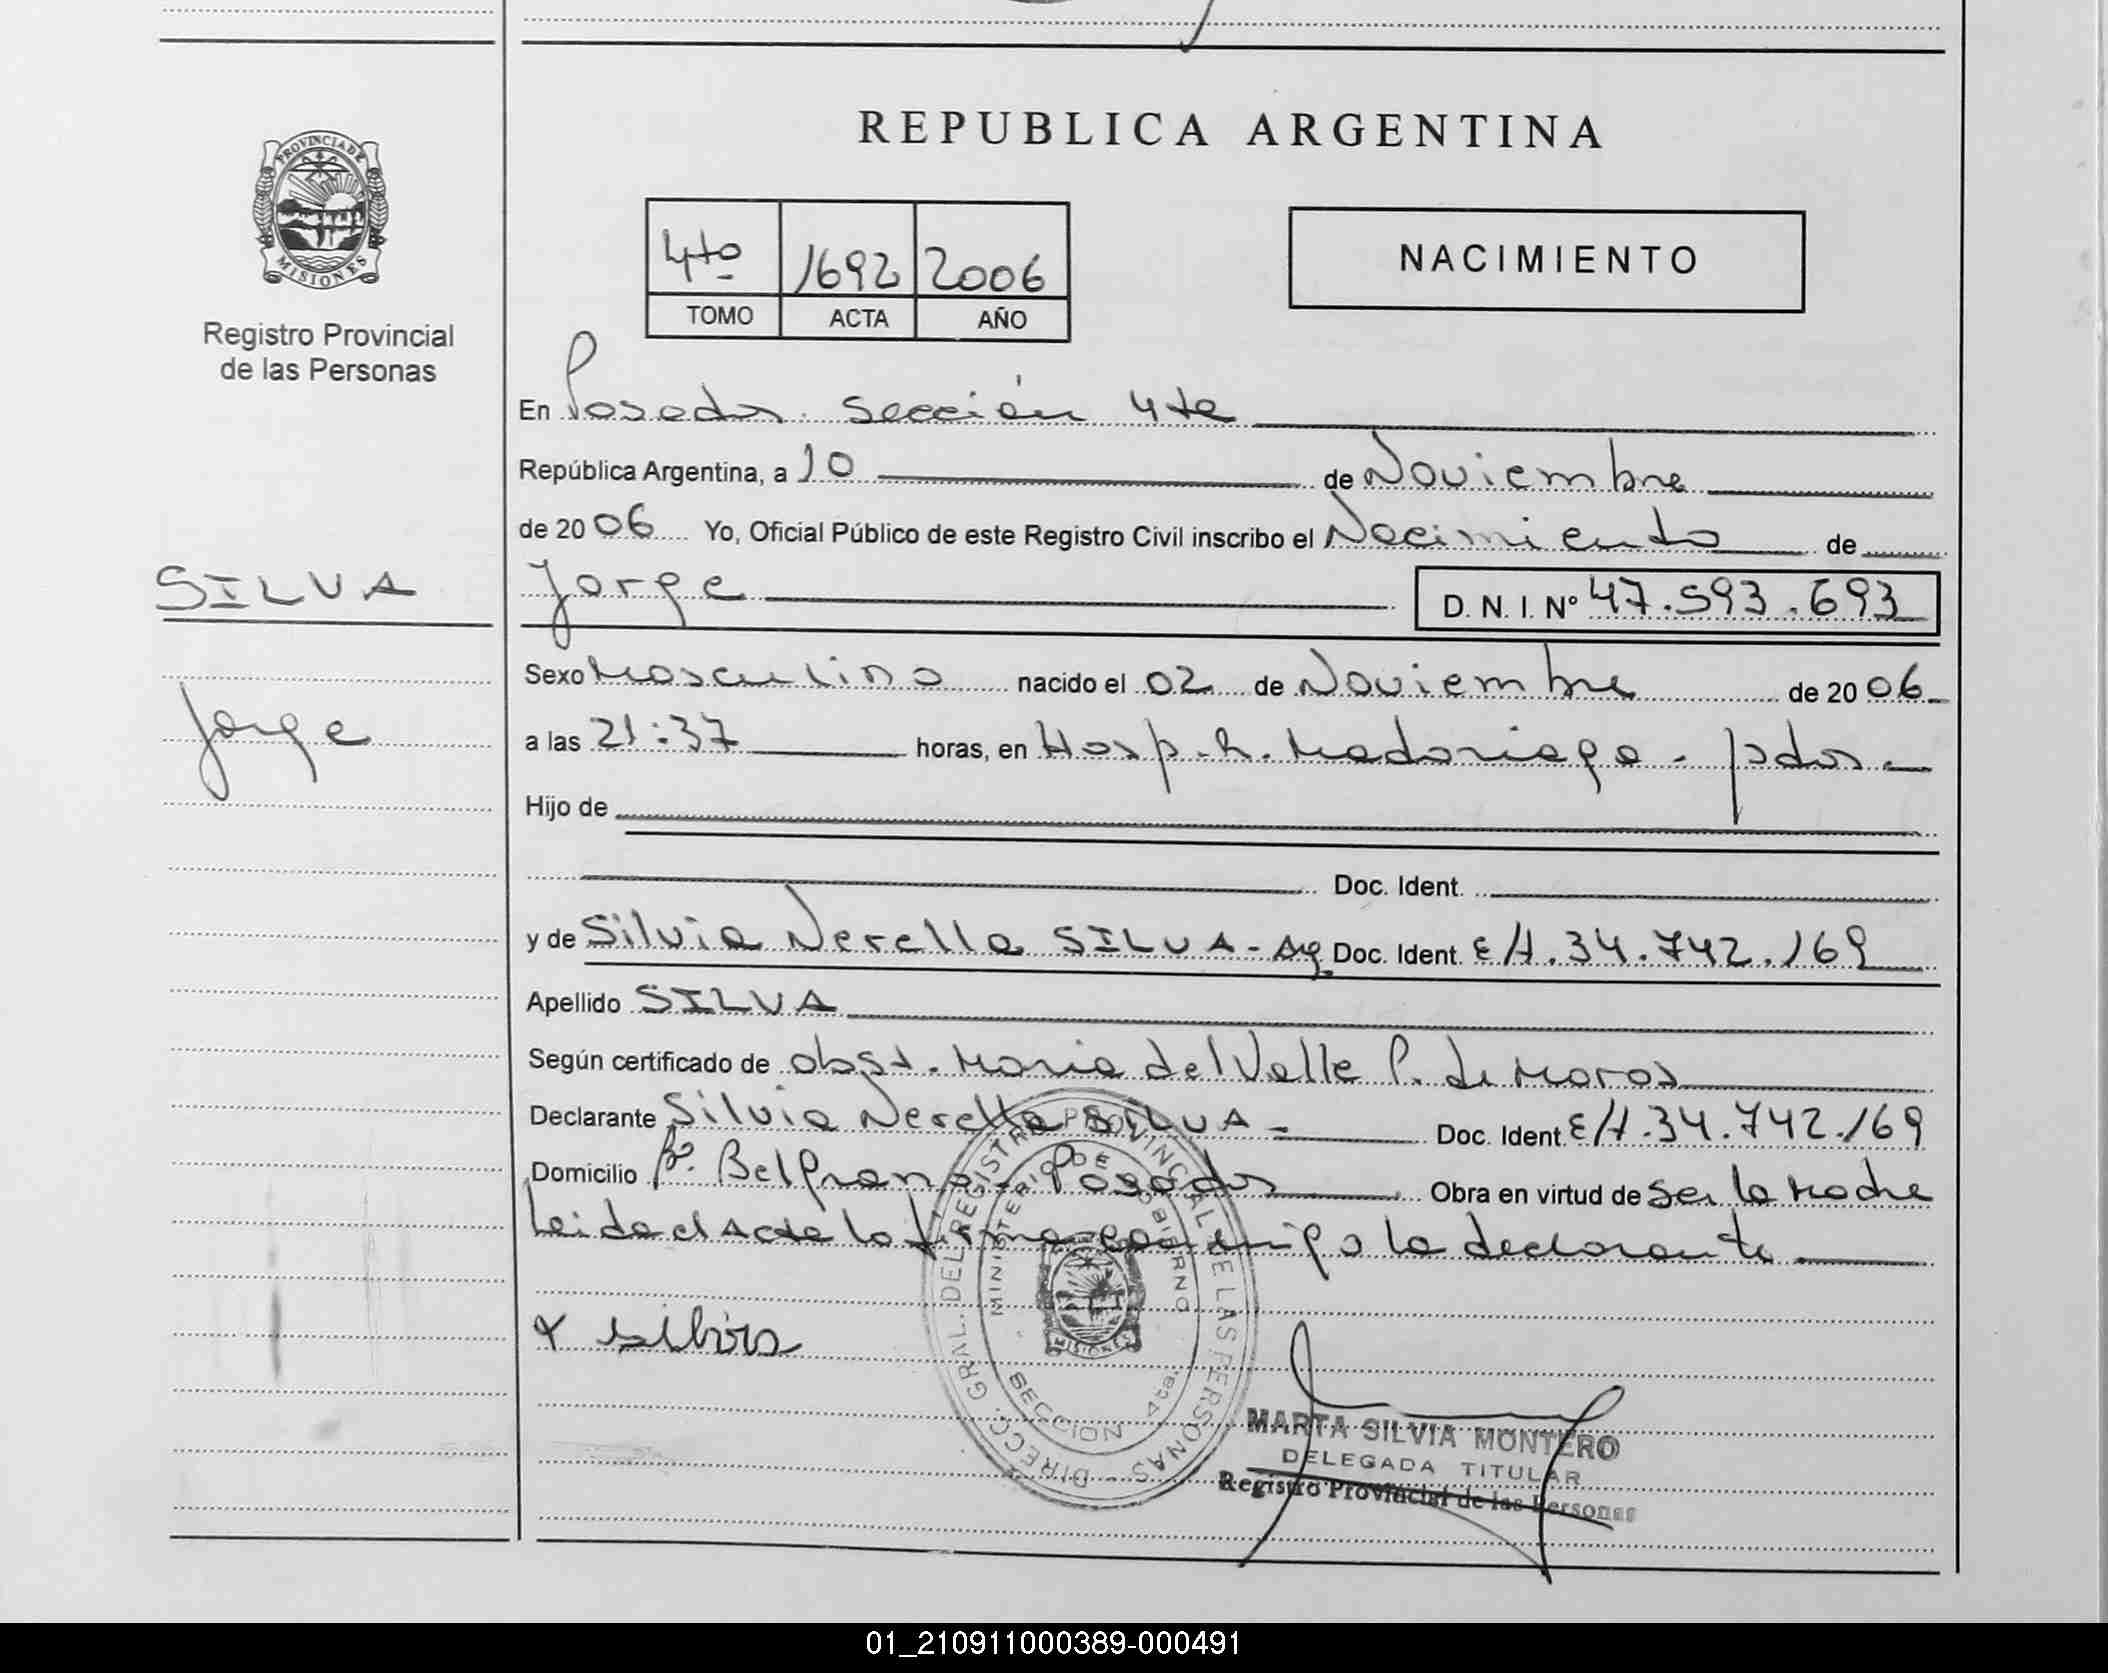 REPUBLICA ARGENTINA
PROVINCIA DE
MISIONES
Registro Provincial
de las Personas
4to 1692 2006
TOMO ACTA AÑO
NACIMIENTO
En Posadas. Sección 4ta
República Argentina, a 10 de Noviembre
de 2006 Yo, Oficial Público de este Registro Civil inscribo el Nacimiento de
SILVA
Jorge
Jorge D. N. I. Nº 47.593.693
Sexo Masculino nacido el 02 de Noviembre de 2006
a las 21:37 horas, en Hosp. R. Madariaga - Pdas.
Hijo de
Doc. Ident.
y de Silvia Nerella SILVA - Arg. Doc. Ident. E/T. 34.742.169
Apellido SILVA
Según certificado de obst. Maria del Valle P. de Maros
Declarante Silvia Nerella SILVA - Doc. Ident. E/T. 34.742.169
Domicilio Bº. Belgrano - Posadas Obra en virtud de ser la Madre
Leida el Acta la firma conmigo la declarante
x silvia
DIRECC. GRAL. DEL REGISTRO PROVINCIAL DE LAS PERSONAS
MINISTERIO DE GOBIERNO
MISIONES
SECCION 4ta.
MARTA SILVIA MONTERO
DELEGADA TITULAR
Registro Provincial de las Personas
01_210911000389-000491